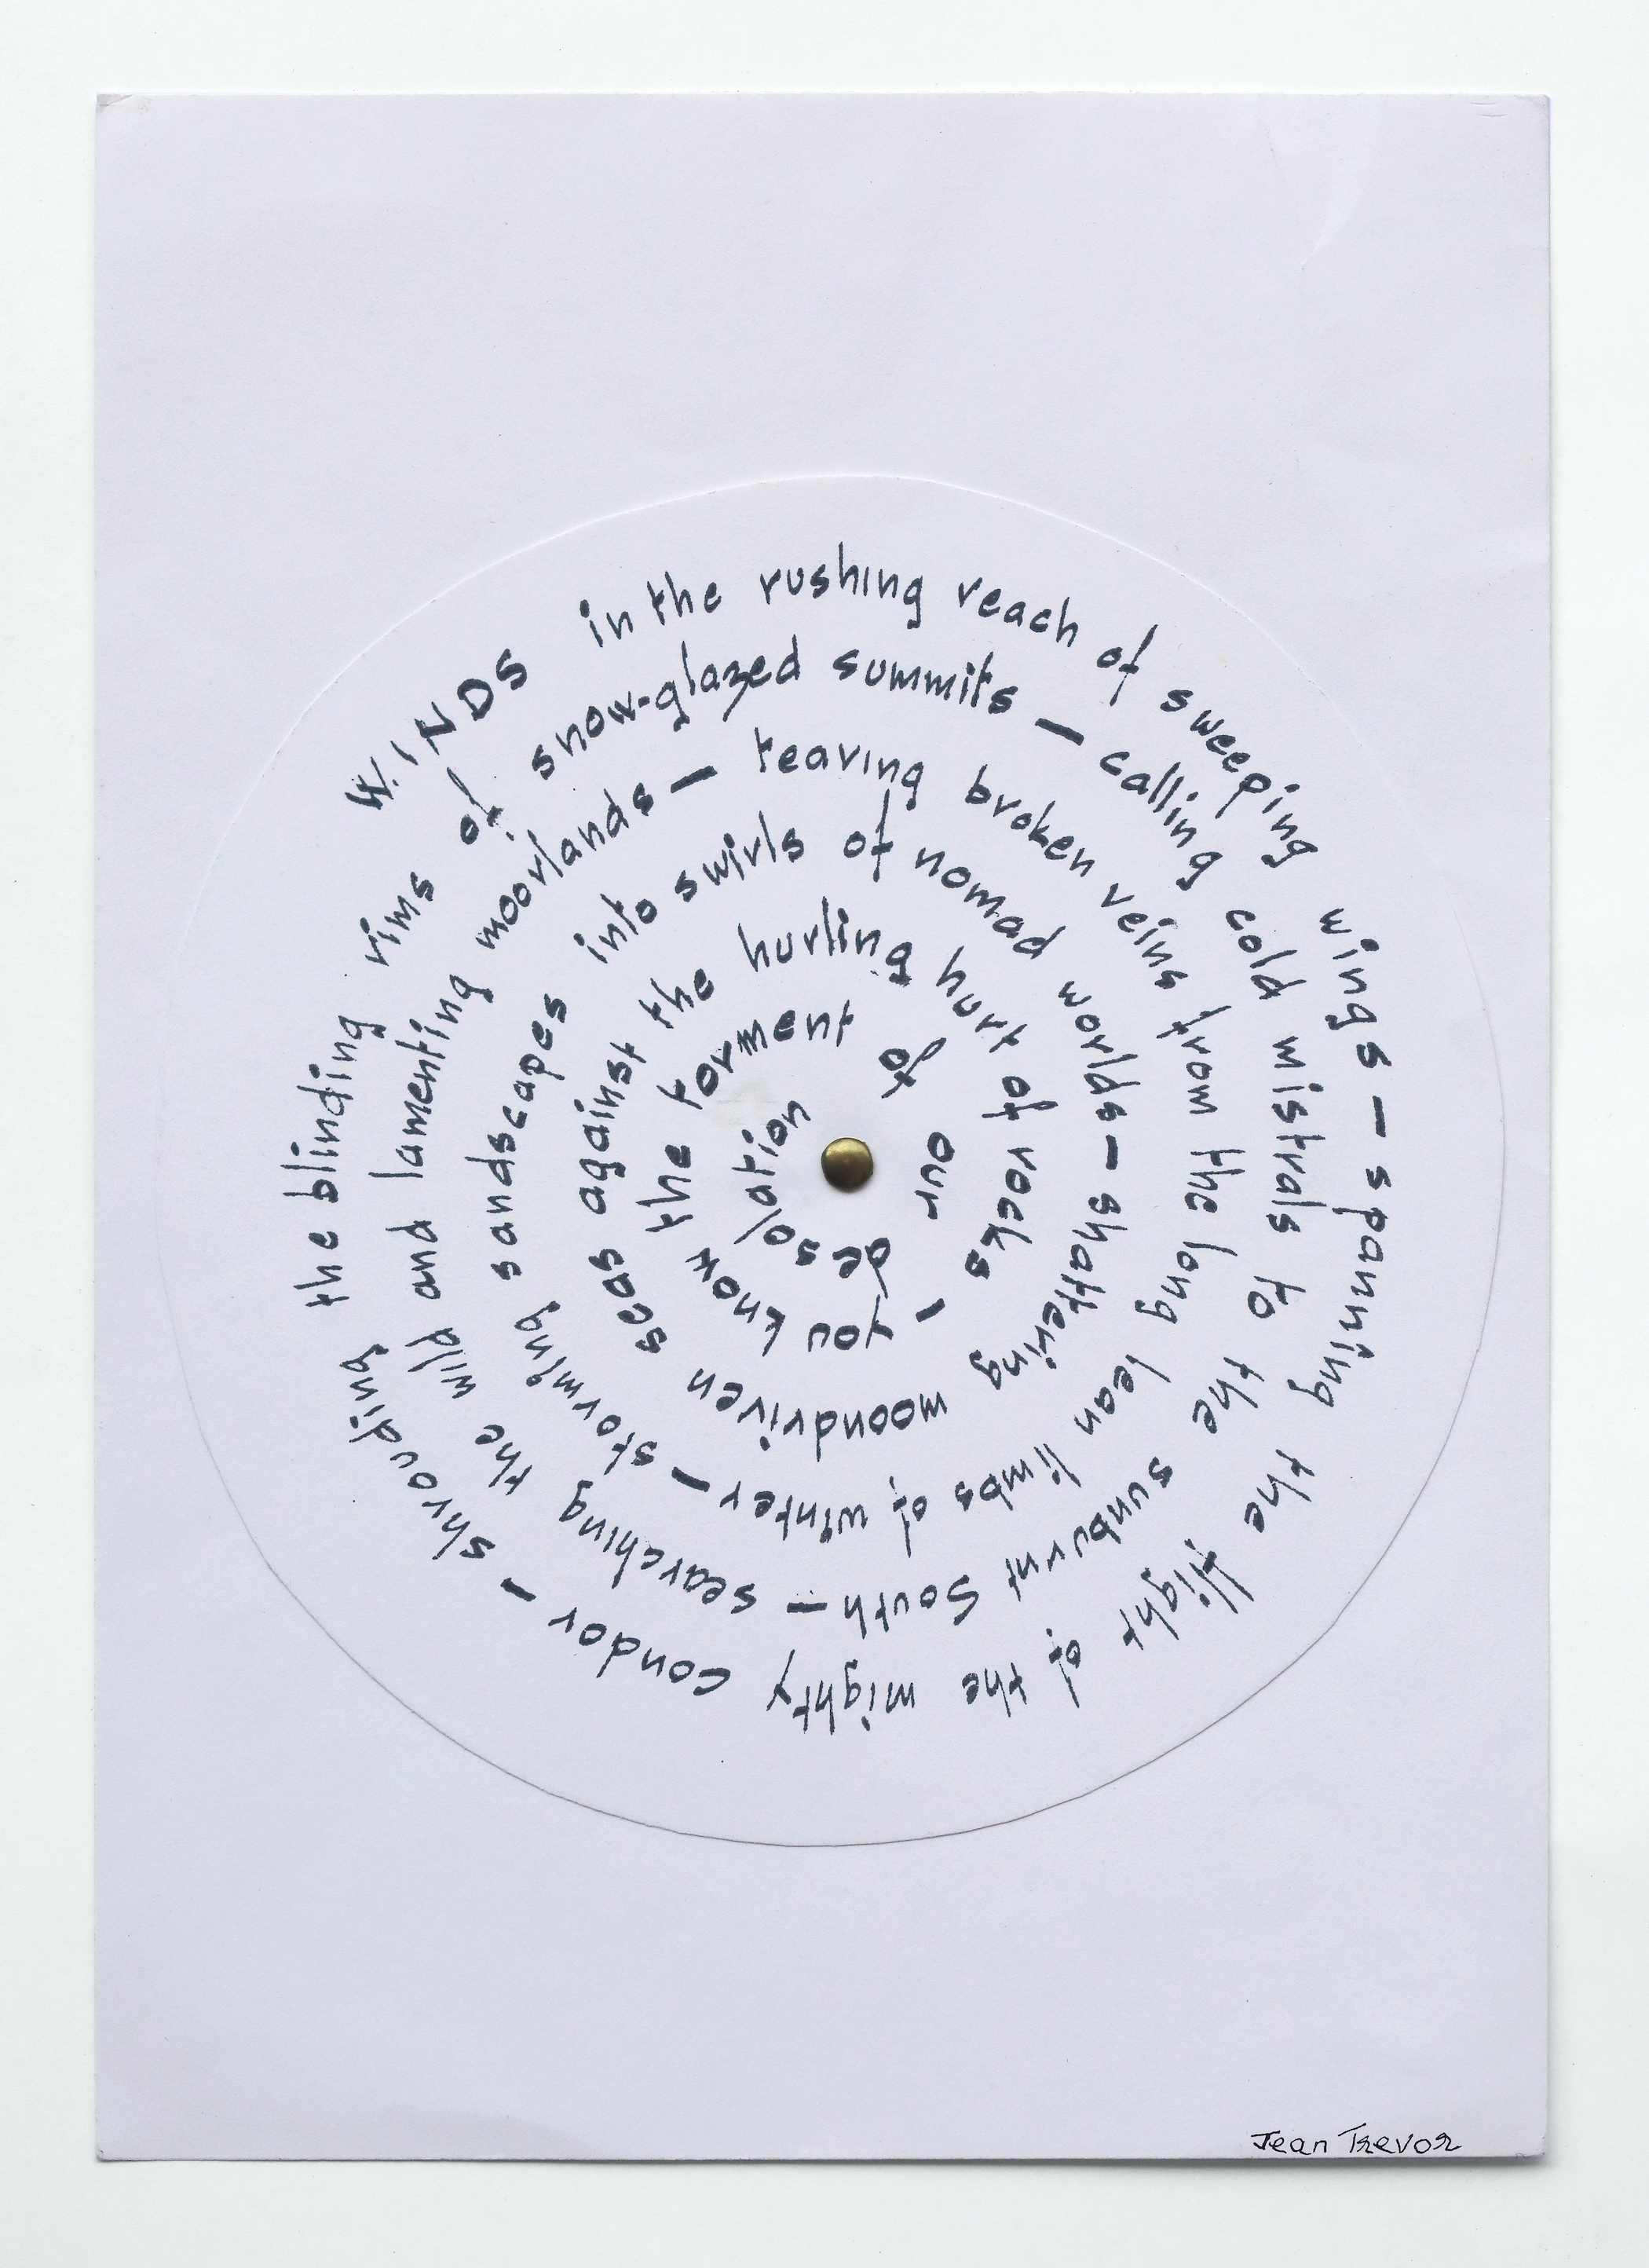 WINDS in the rushing reach of sweeping wings – spanning the flight of the mighty condor – shrouding the blinding rims of snow-glazed summits – calling cold mistrals to the sunburnt South – searching the wild and lamenting moorlands – tearing broken veins from the long lean limbs of winter – storming sandscapes into swirls of nomad worlds – shattering moondriven seas against the hurling hurt of rocks – you know the torment of our desolation
Jean Trevor